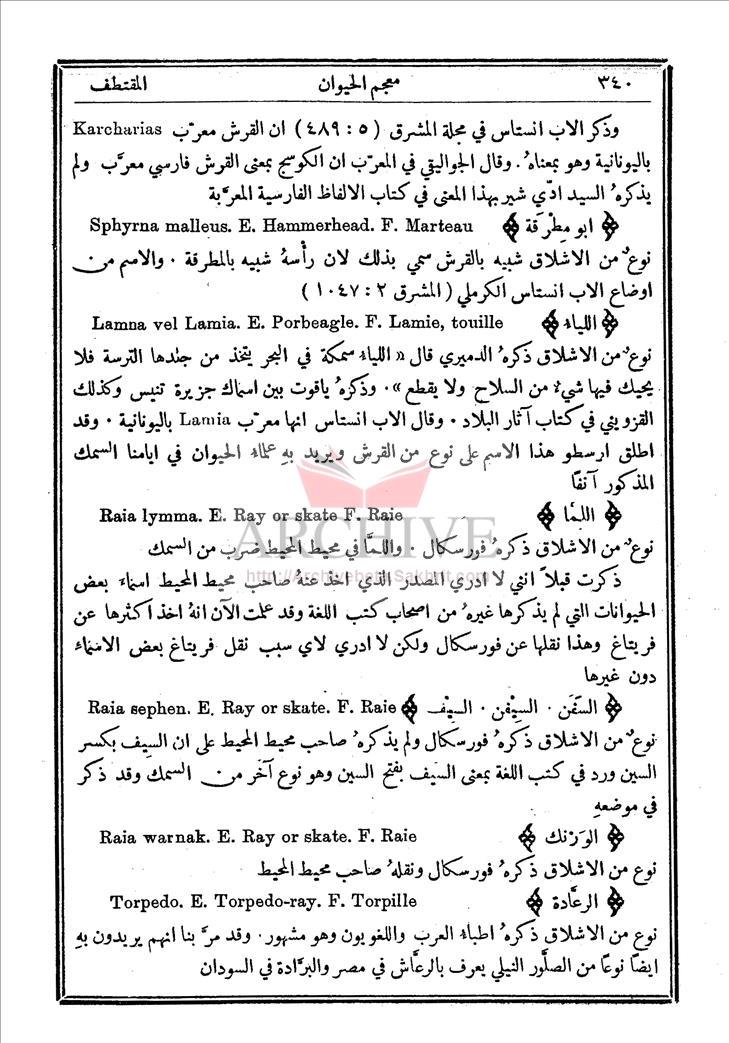 ٣٤٠ معجم الحيوان المقتطف
وذكر الاب انستاس في مجلة المشرق (٥ : ٤٨٩) ان القرش معرّب Karcharias
باليونانية وهو بمعناهُ. وقال الجواليقي في المعرّب ان الكوسج بمعنى القرش فارسي معرَّب ولم
يذكرهُ السيد ادّي شير بهذا المعنى في كتاب الالفاظ الفارسية المعرَّبة
﴿ ابو مِطْرَقة ﴾ Sphyrna malleus. E. Hammerhead. F. Marteau
نوعٌ من الاشلاق شبيه بالقرش سمي بذلك لان رأسهُ شبيه بالمطرقة . والاسم من
اوضاع الاب انستاس الكرملي (المشرق ٢ : ١٠٤٧)
﴿ اللياء ﴾ Lamna vel Lamia. E. Porbeagle. F. Lamie, touille
نوعٌ من الاشلاق ذكرهُ الدميري قال « اللياء سمكة في البحر يتخذ من جلدها الترسة فلا
يحيك فيها شيءٌ من السلاح ولا يقطع » . وذكرهُ ياقوت بين اسماك جزيرة تنيس وكذلك
القزويني في كتاب آثار البلاد . وقال الاب انستاس انها معرّب Lamia باليونانية . وقد
اطلق ارسطو هذا الاسم على نوع من القرش ويريد بهِ علماء الحيوان في ايامنا السمك
المذكور آنفًا
﴿ اللمَّا ﴾ Raia lymma. E. Ray or skate F. Raie
نوعٌ من الاشلاق ذكرهُ فورسكال . واللمَّا في محيط المحيط ضرب من السمك
ذكرت قبلاً انني لا ادري المصدر الذي اخذ عنهُ صاحب محيط المحيط اسماء بعض
الحيوانات التي لم يذكرها غيرهُ من اصحاب كتب اللغة وقد علمت الآن انهُ اخذ اكثرها عن
فريتاغ وهذا نقلها عن فورسكال ولكن لا ادري لاي سبب نقل فريتاغ بعض الاسماء
دون غيرها
﴿ السَّفَن . السِيْفن . السِيْف ﴾ Raia sephen. E. Ray or skate. F. Raie
نوعٌ من الاشلاق ذكرهُ فورسكال ولم يذكرهُ صاحب محيط المحيط على ان السِيف بكسر
السين ورد في كتب اللغة بمعنى السَيف بفتح السين وهو نوع آخر من السمك وقد ذكر
في موضعهِ
﴿ الوَرْنك ﴾ Raia warnak. E. Ray or skate. F. Raie
نوع من الاشلاق ذكرهُ فورسكال ونقلهُ صاحب محيط المحيط
﴿ الرعَّادة ﴾ Torpedo. E. Torpedo-ray. F. Torpille
نوعٌ من الاشلاق ذكرهُ اطباء العرب واللغويون وهو مشهور . وقد مرَّ بنا انهم يريدون بهِ
ايضًا نوعًا من الصلَّور النيلي يعرف بالرعَّاش في مصر والبرَّادة في السودان
ARCHIVE
http://Archivebeta.Sakhrit.com